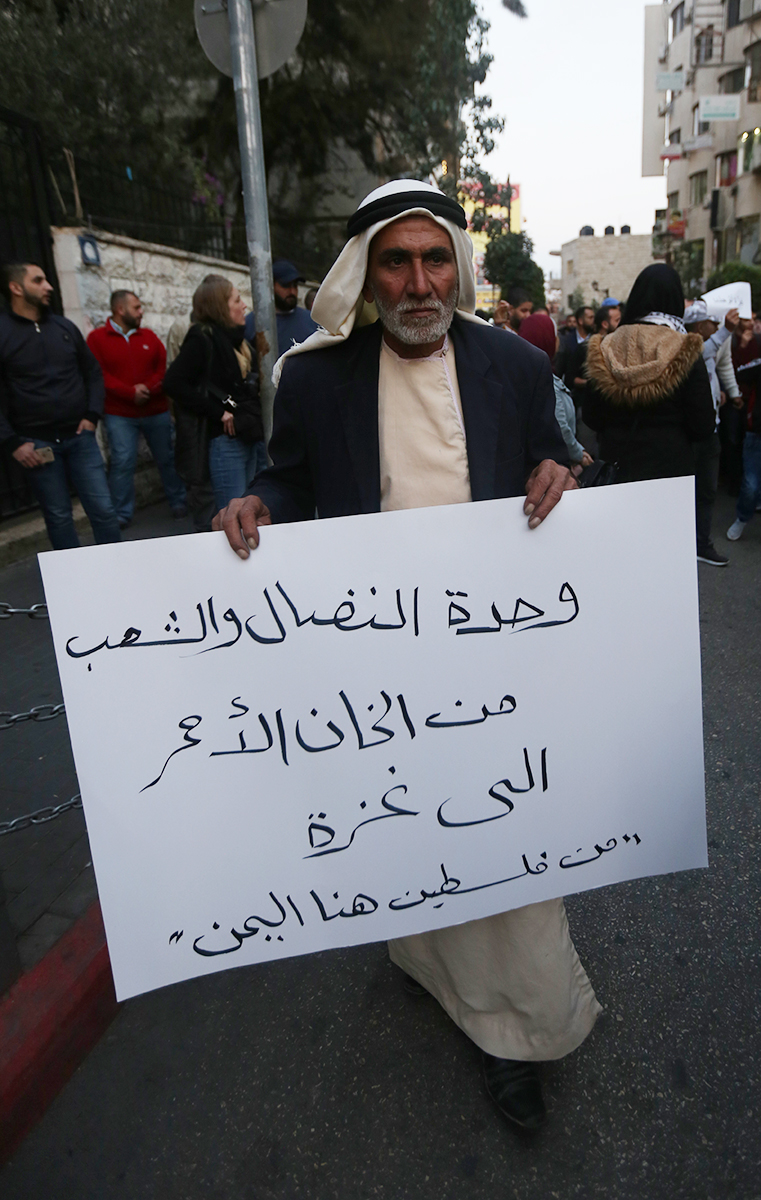 وحدة النضال والشعب
من الخان الأحمر
الى غزة
"من فلسطين هنا اليمن"